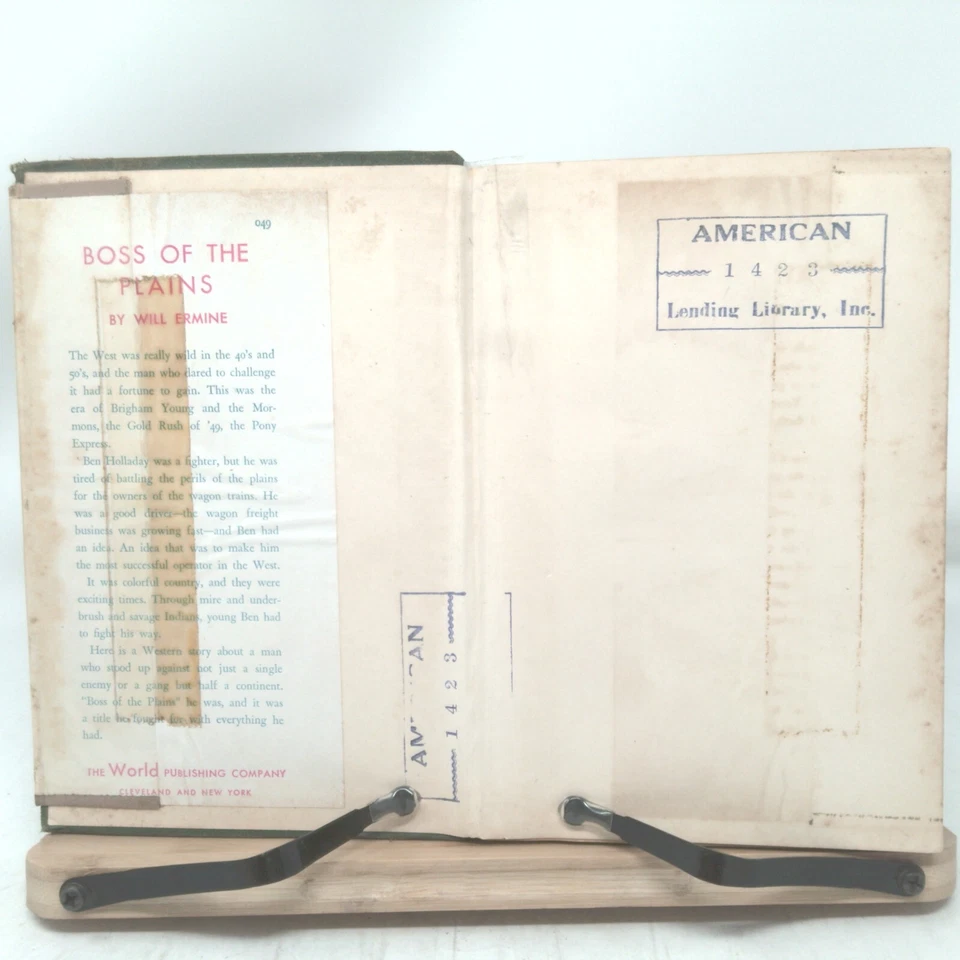 049
BOSS OF THE
PLAINS
BY WILL ERMINE
The West was really wild in the 40's and
50's, and the man who dared to challenge
it had a fortune to gain. This was the
era of Brigham Young and the Mor-
mons, the Gold Rush of '49, the Pony
Express.
Ben Holladay was a fighter, but he was
tired of battling the perils of the plains
for the owners of the wagon trains. He
was a good driver—the wagon freight
business was growing fast—and Ben had
an idea. An idea that was to make him
the most successful operator in the West.
It was colorful country, and they were
exciting times. Through mire and under-
brush and savage Indians, young Ben had
to fight his way.
Here is a Western story about a man
who stood up against not just a single
enemy or a gang but half a continent.
"Boss of the Plains" he was, and it was
a title he fought for with everything he
had.
THE World PUBLISHING COMPANY
CLEVELAND AND NEW YORK
AMERICAN
1423
AMERICAN
1423
Lending Library, Inc.